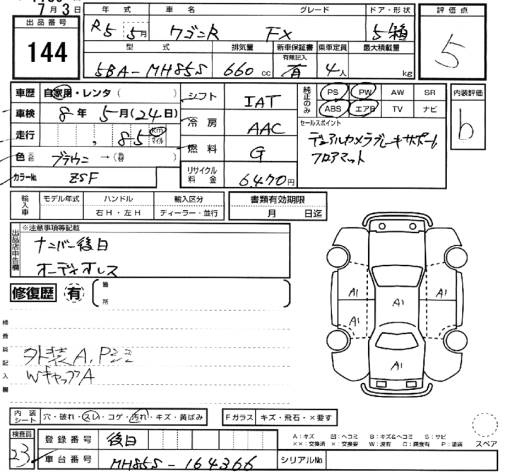 月 3 日
出品番号 年式 車名 グレード ドア・形状 評価点
144 R5 5月 ワゴンR FX 5箱 5
型式 排気量 新車保証書 乗車定員 最大積載量
有無記入
5BA-MH85S 660cc 有 4人 kg
車歴 自家用・レンタ( ) シフト IAT 純正のみ PS PW AW SR 内装評価
車検 8年5月(24日) 冷房 AAC ABS エアB TV ナビ b
走行 , 85 セールスポイント
燃料 G デュアルカメラブレーキサポート
色 ブラウン →( ) フロアマット
カラーNo. ZSF リサイクル料金 6,470円
輸入車 モデル年式 ハンドル 輸入区分 書類有効期限
右H・左H ディーラー・並行 月 日迄
出品店申告欄 ※注意事項等記載
ナンバー後日
オーディオレス
修復歴 有 箇所
検査員記入欄
外装A,Pシミ
WキャップA
A1
A1 A1
A1
内装シート 穴・破れ・スレ・コゲ・汚れ・キズ・黄ばみ Fガラス キズ・飛石・×要す
スペア
検査員 23 登録番号 後日
A:キズ 凹:ヘコミ B:キズ&ヘコミ S:サビ
××:交換済 ×:交換要 W:波有 C:腐食有 P:塗装
車台番号 MH85S-164366 シリアルNo.